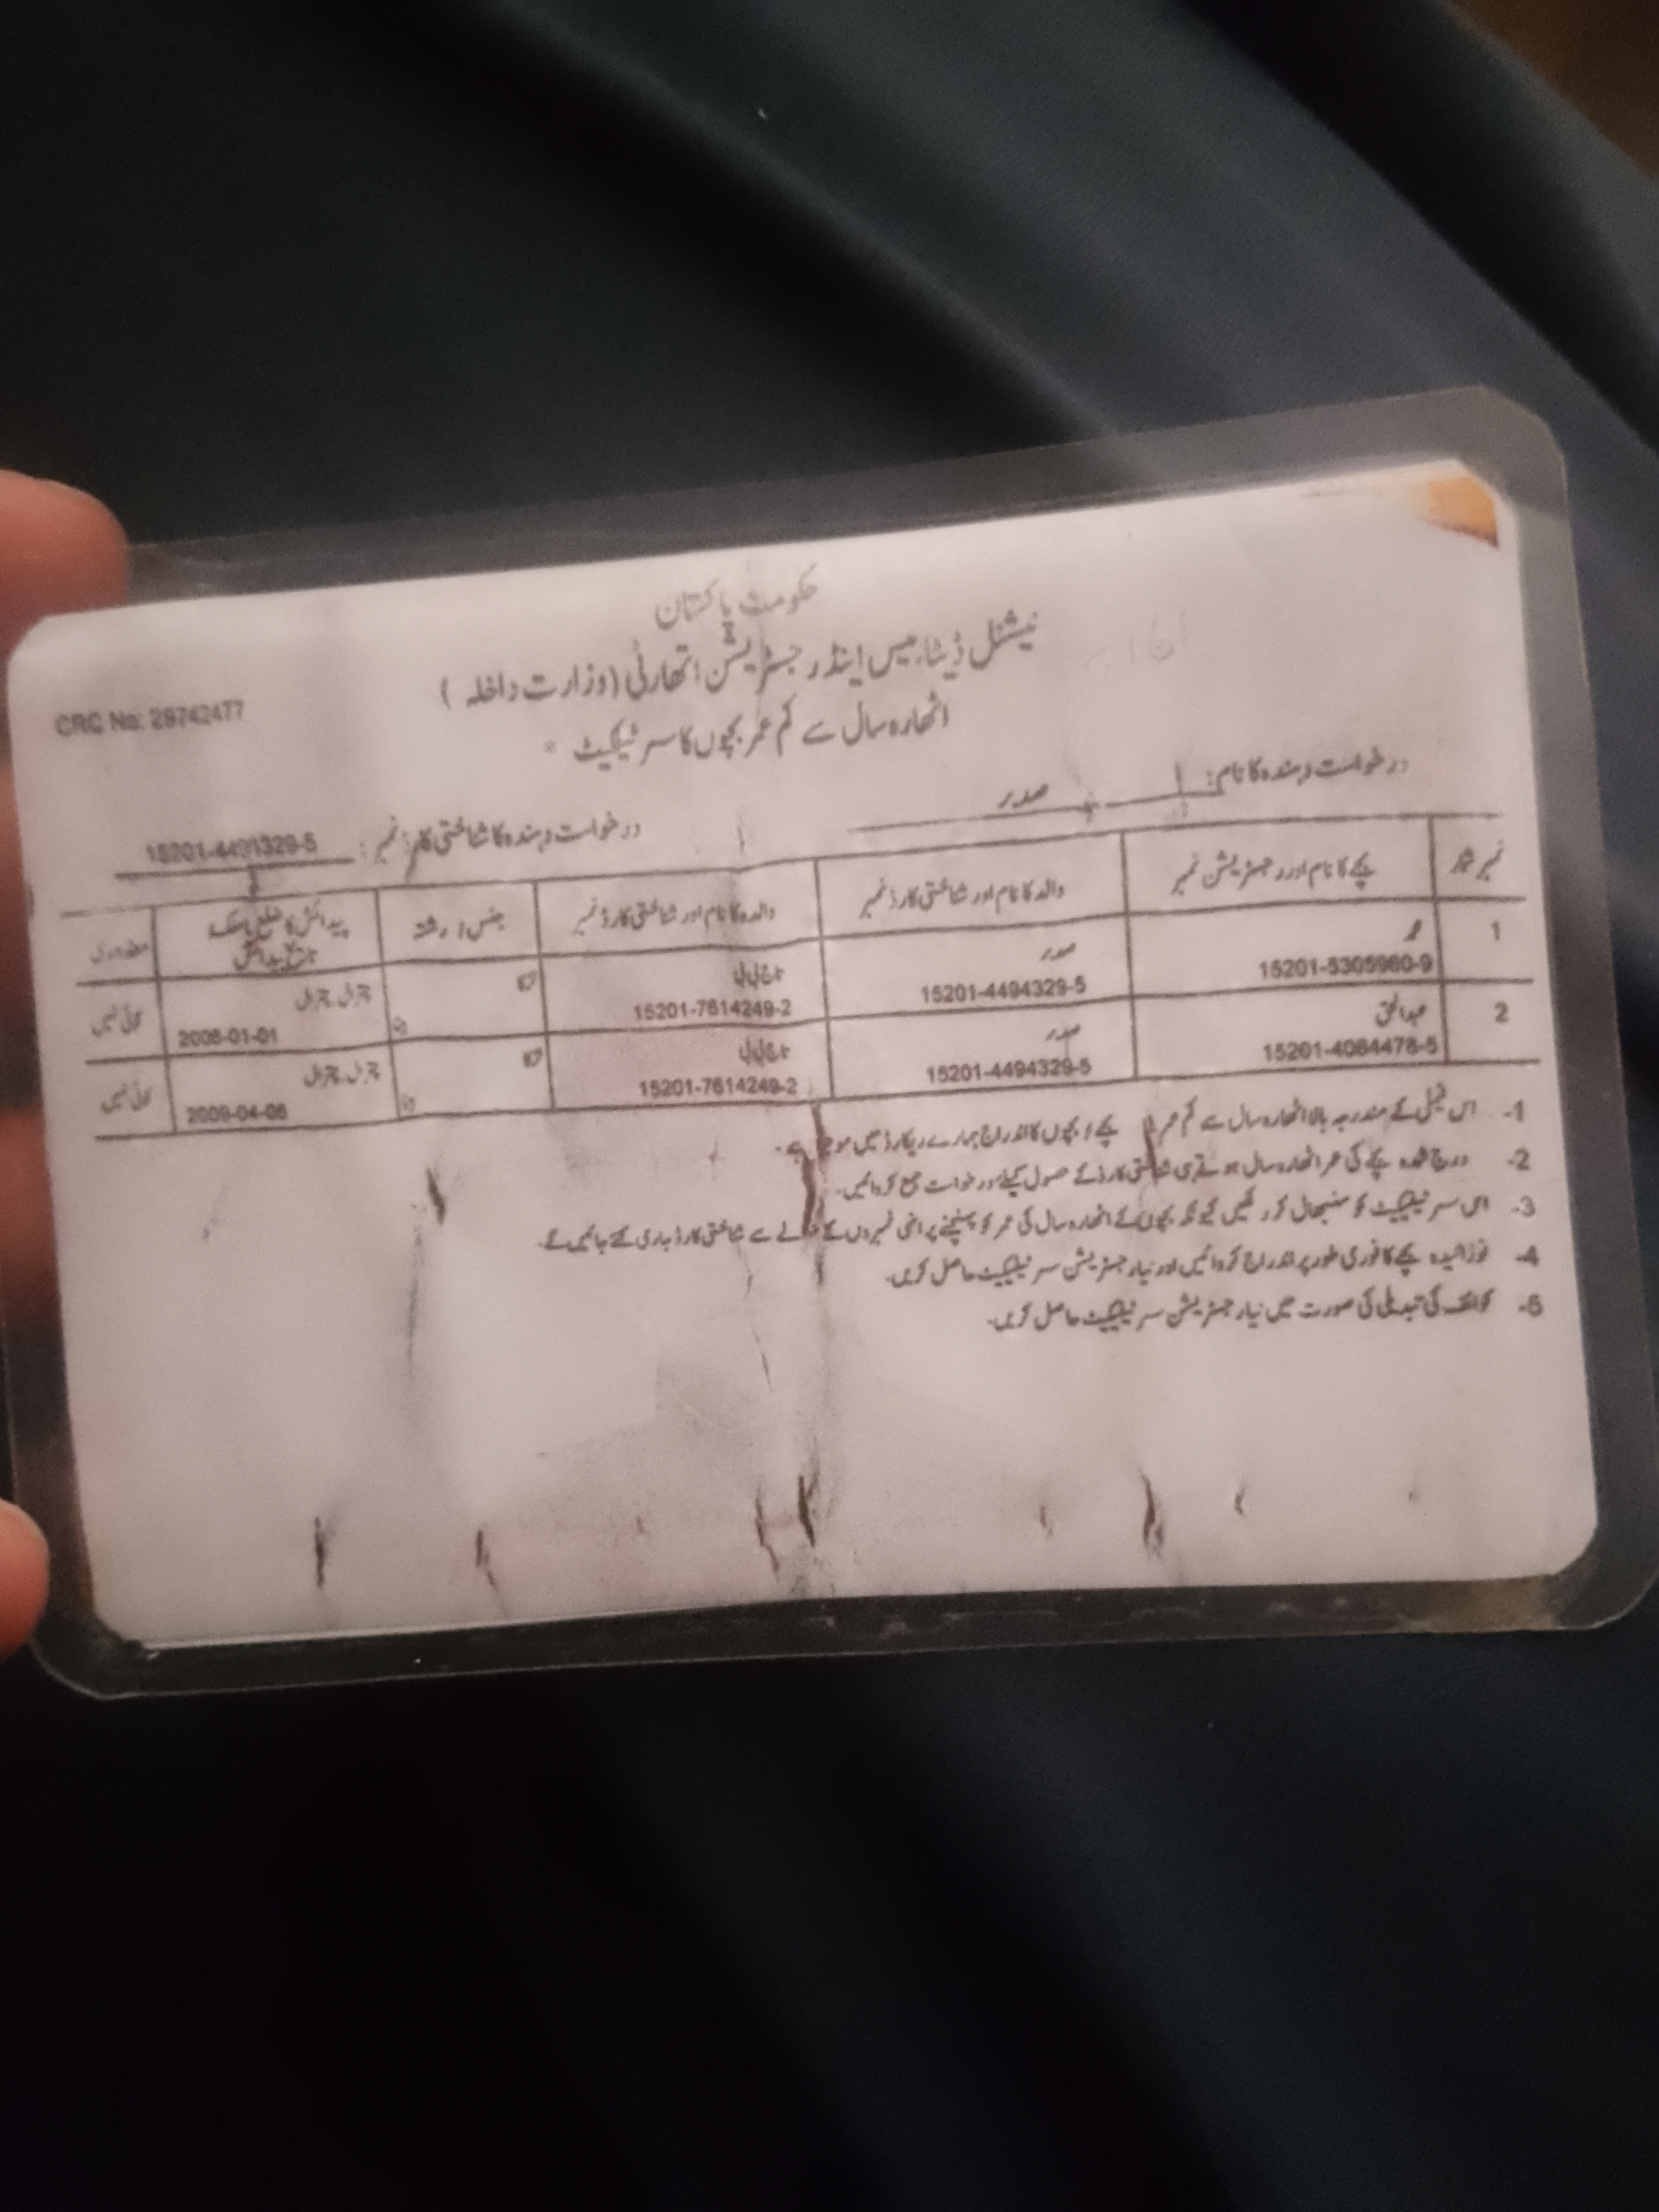 حکومت پاکستان
نیشنل ڈیٹا بیس اینڈ رجسٹریشن اتھارٹی (وزارت داخلہ)
CRC No: 29742477
اٹھارہ سال سے کم عمر بچوں کا سرٹیفکیٹ *
درخواست دہندہ کا نام: صدر
درخواست دہندہ کا شناختی کارڈ نمبر:
نمبر شمار بچے کا نام اور رجسٹریشن نمبر والد کا نام اور شناختی کارڈ نمبر والدہ کا نام اور شناختی کارڈ نمبر جنس / رشتہ پیدائش کا ضلع یا ملک معذوری
تاریخ پیدائش
1 صدر تاج بی بی چترال، چترال کوئی نہیں
15201-5305960-9 15201-4494329-5 15201-7614249-2 2008-01-01
2 عبدالحق صدر تاج بی بی چترال، چترال کوئی نہیں
15201-4084478-5 15201-4494329-5 15201-7614249-2 2009-04-06
1- اس فیملی کے مندرجہ بالا اٹھارہ سال سے کم عمر بچے / بچوں کا اندراج ہمارے ریکارڈ میں موجود ہے۔
2- درج شدہ بچے کی عمر اٹھارہ سال ہوتے ہی شناختی کارڈ کے حصول کیلئے درخواست جمع کروائیں۔
3- اس سرٹیفکیٹ کو سنبھال کر رکھیں کیونکہ بچوں کے اٹھارہ سال کی عمر کو پہنچنے پر انہی نمبروں کے حوالے سے شناختی کارڈ جاری کئے جائیں گے۔
4- نوزائیدہ بچے کا فوری طور پر اندراج کروائیں اور نیا رجسٹریشن سرٹیفکیٹ حاصل کریں۔
5- کوائف کی تبدیلی کی صورت میں نیا رجسٹریشن سرٹیفکیٹ حاصل کریں۔